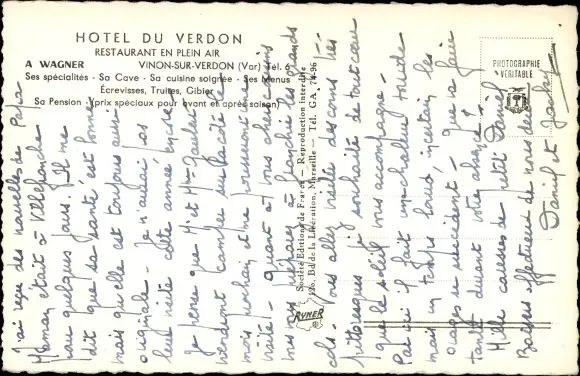 HOTEL DU VERDON
RESTAURANT EN PLEIN AIR
A WAGNER VINON-SUR-VERDON (Var) Tél. 6
Ses spécialités - Sa Cave - Sa cuisine soignée - Ses Menus
Écrevisses, Truites, Gibier
Sa Pension (prix spéciaux pour avant et après saison)
PHOTOGRAPHIE
VÉRITABLE
Société Editions de France — Reproduction interdite
Bd de la Libération, Marseille — Tél. GA. 74-96
RYNER
J'ai reçu des nouvelles de Papa
Maman était à Villefranche
pour quelques jours. Il me
dit que sa santé est bonne
mais qu'elle est toujours aussi
originale. Je n'aurai pas
leur visite cette année encore
Je pense que M. et Mme Gaubert
viendront camper
mois prochain et me
visite. Quant à vous chers cousins
à franchir les grands
cols. Vous allez visiter des coins très
pittoresques je souhaite de tout cœur
que le soleil vous accompagne.
Par ici il fait une chaleur torride
mais un temps lourd, incertain, les
orages se succèdent. Que va faire
tante durant votre absence?
Mille caresses de petit Daniel
Baisers affectueux de nous deux
Daniel et Jacky